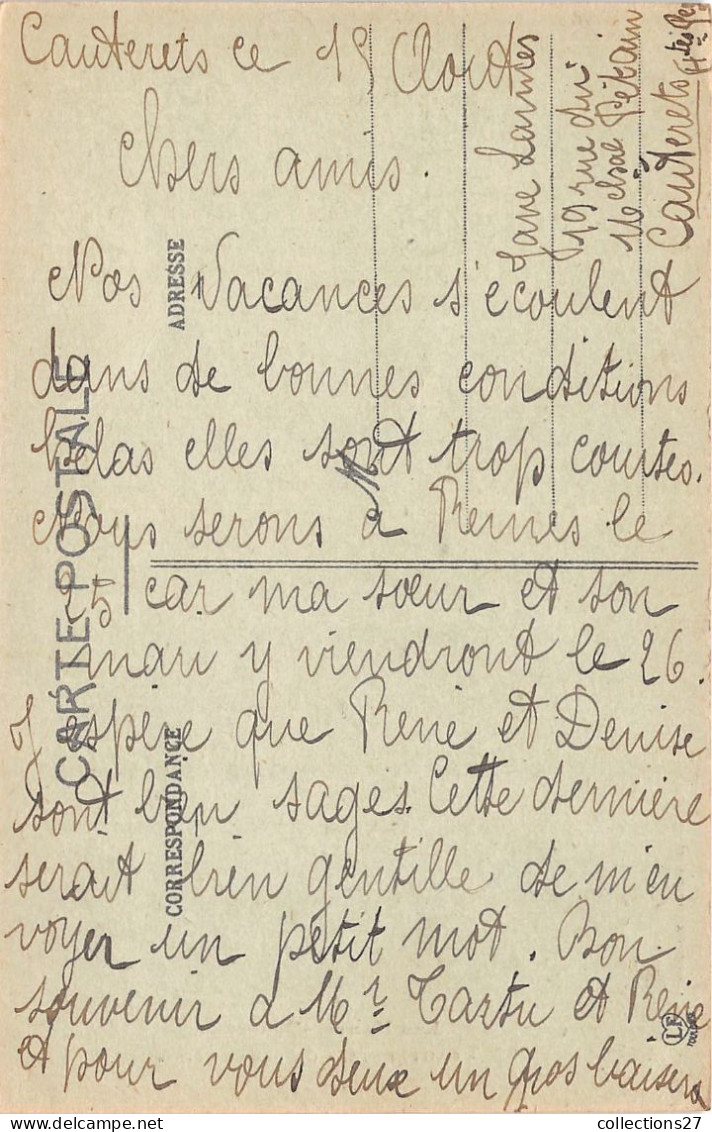 Cauterets ce 15 Août
Chers amis.
Nos Vacances s'écoulent
dans de bonnes conditions
hélas elles sont trop courtes.
Nous serons à Reims le
25 car ma sœur et son
mari y viendront le 26.
J'espère que René et Denise
sont bien sages. Cette dernière
serait bien gentille de m'en
voyer un petit mot. Bon
souvenir à Mr Tartu et René
et pour vous deux un gros baisers
Lannes
19 rue du
Mchal Pétain
Cauterets
Htes Pyr
CARTE POSTALE
CORRESPONDANCE
ADRESSE
M
LF
TOULOUSE
collections27